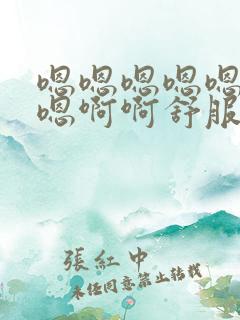 嗯嗯嗯嗯嗯
嗯啊啊舒服
張紅中
未经同意禁止转载